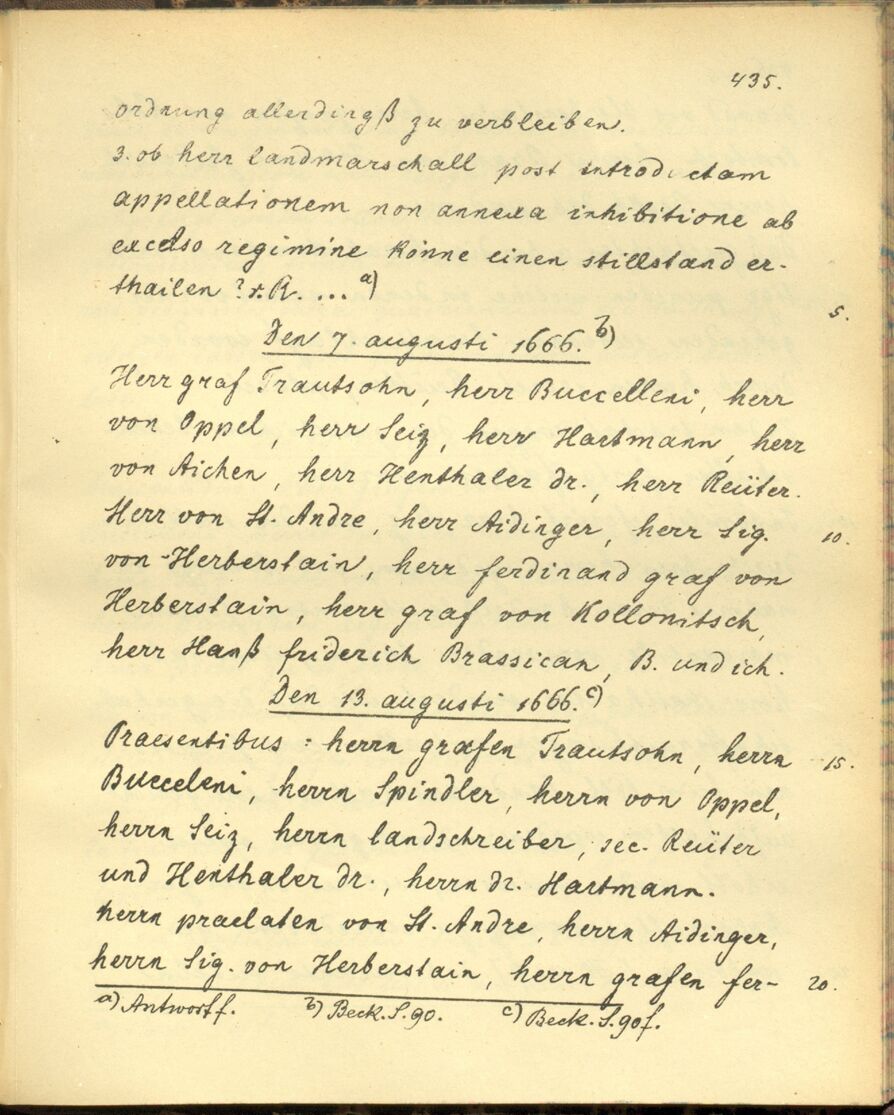 435.
ordnung allerdingß zu verbleiben.
3. ob herr landmarschall post introductam
appellationem non annexa inhibitione ab
excelso regimine könne einen stillstand er-
thailen? r. R. ... a)
5.
Den 7. augusti 1666. b)
Herr graf Trautsohn, herr Buccelleni, herr
von Oppel, herr Seiz, herr Hartmann, herr
von Aichen, herr Henthaler dr., herr Reüter.
Herr von St. Andre, herr Aidinger, herr Sig.
10.
von Herberstain, herr ferdinand graf von
Herberstain, herr graf von Kollonitsch,
herr Hanß friderich Brassican, B. und ich.
Den 13. augusti 1666. c)
Praesentibus: herrn grafen Trautsohn, herrn
15.
Bucceleni, herrn Spindler, herrn von Oppel,
herrn Seiz, herrn landschreiber, sec. Reüter
und Henthaler dr., herrn dr. Hartmann.
herrn praelaten von St. Andre, herrn Aidinger,
herrn Sig. von Herberstain, herrn grafen fer-
20.
a) Antwort f. b) Beck. S. 90. c) Beck. S. 90f.